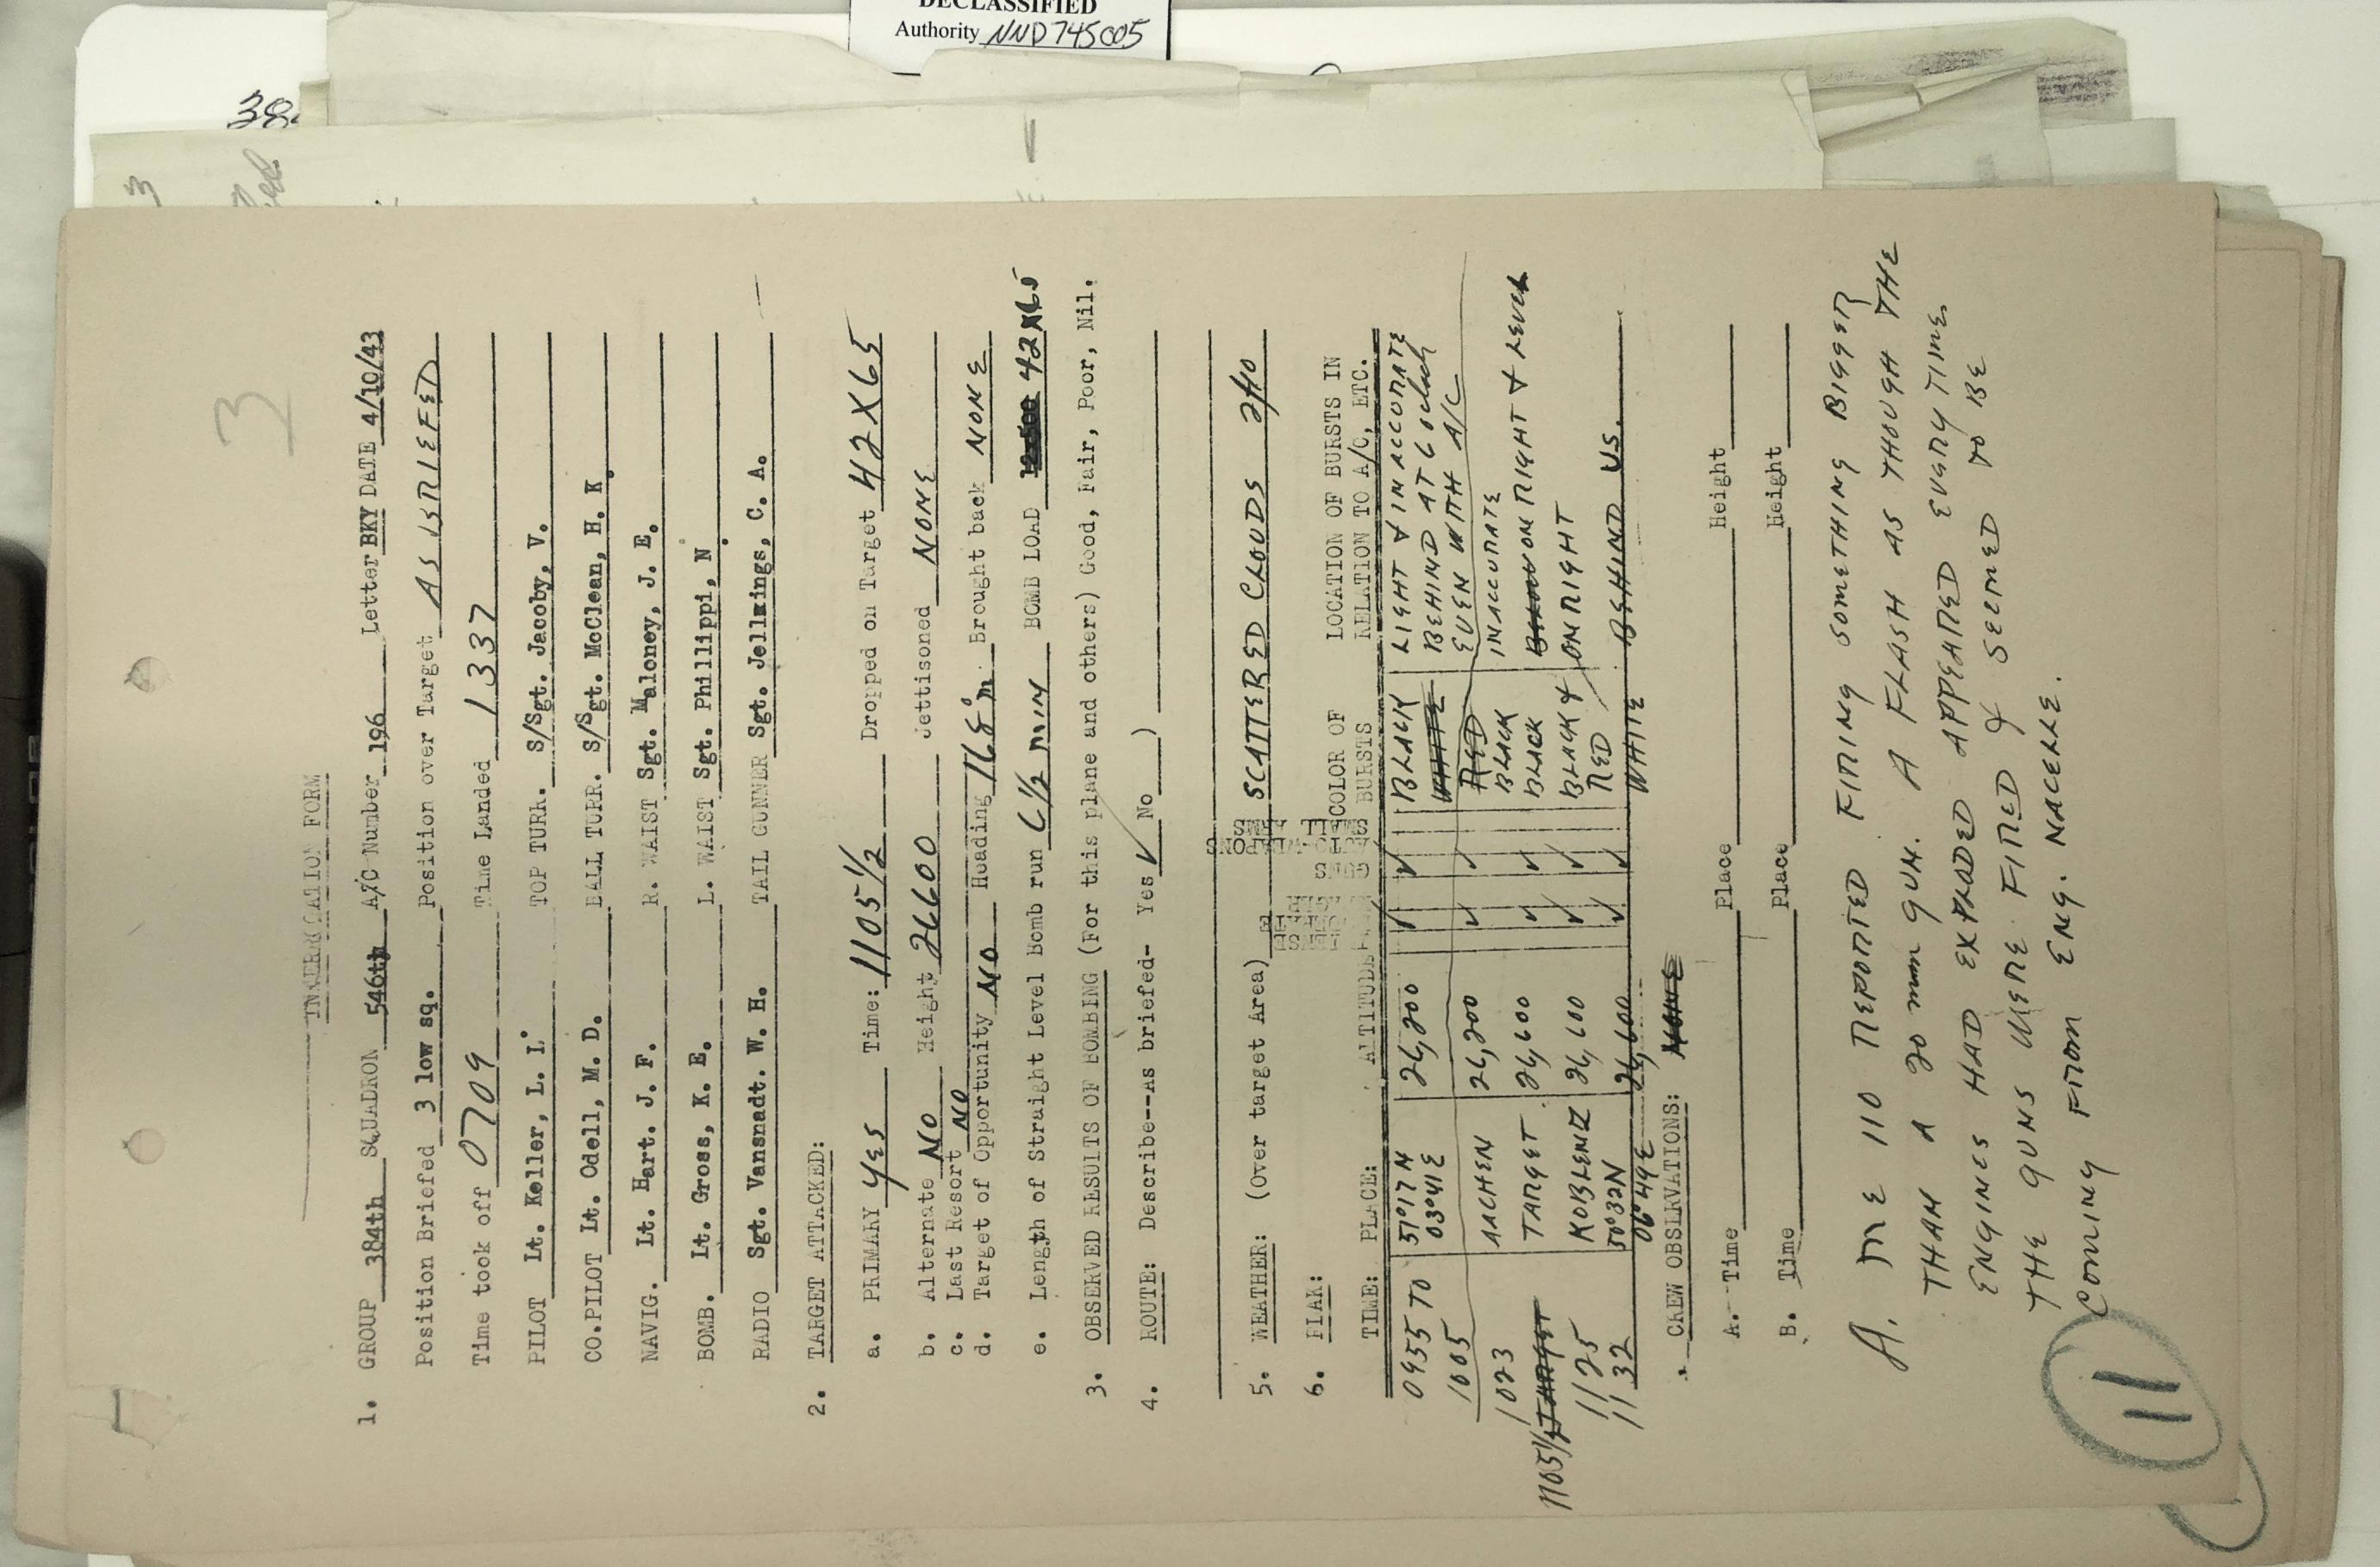 DECLASSIFIED
Authority NND 745005
3
INTERROGATION FORM
1. GROUP 384th SQUADRON 546th A/C Number 196 Letter BKY DATE 4/10/43
Position Briefed 3 low sq. Position over Target AS BRIEFED
Time took off 0709 Time Landed 1337
PILOT Lt. Keller, L. L. TOP TURR. S/Sgt. Jacoby, V.
CO.PILOT Lt. Odell, M. D. BALL TURR. S/Sgt. McClean, H. K.
NAVIG. Lt. Hart. J. F. R. WAIST Sgt. Maloney, J. E.
BOMB. Lt. Gross, K. E. L. WAIST Sgt. Phillippi, N.
RADIO Sgt. Vansnadt. W. H. TAIL GUNNER Sgt. Jellings, C. A.
2. TARGET ATTACKED:
a. PRIMARY YES Time: 1105 1/2 Dropped on Target 42X65
b. Alternate NO Height 26600 Jettisoned NONE
c. Last Resort NO
d. Target of Opportunity NO Heading 168°m. Brought back NONE
e. Length of Straight Level Bomb run 6 1/2 MIN BOMB LOAD 42X65
3. OBSERVED RESULTS OF BOMBING (For this plane and others) Good, Fair, Poor, Nil.
4. ROUTE: Describe--As briefed- Yes √ No )
5. WEATHER: (Over target Area) SCATTERED CLOUDS 2/10
6. FLAK: COLOR OF LOCATION OF BURSTS IN
TIME: PLACE: ALTITUDE BURSTS RELATION TO A/C, ETC.
0955 TO 51°17N 26,200 √ √ BLACK LIGHT & INACCURATE
1005 03°41E WHITE BEHIND AT 6 o'clock
RED EVEN WITH A/C
1023 AACHEN 26,200 √ √ BLACK INACCURATE
1105 1/2 TARGET TARGET 26,600 √ √ BLACK BELOW ON RIGHT & LEVEL
1125 KOBLENZ 26,600 √ √ BLACK & RED ON RIGHT
1132 50°32N 06°49E 26,600 √ √ WHITE BEHIND US.
CREW OBSERVATIONS: NONE
A. Time Place Height
B. Time Place Height
A. ME 110 REPORTED FIRING SOMETHING BIGGER
THAN A 20 mm GUN. A FLASH AS THOUGH THE
ENGINES HAD EXPLODED APPEARED EVERY TIME
THE GUNS WERE FIRED & SEEMED TO BE
COMING FROM ENG. NACELLE.
11